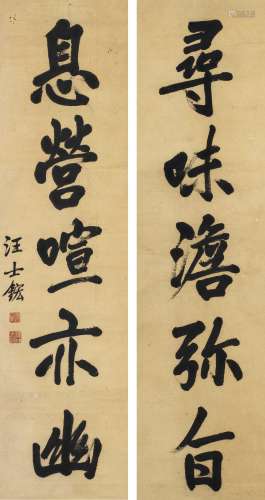 尋味澹弥旨
息營喧亦幽
汪士鋐